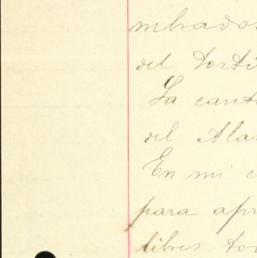 mbrados
del Porti
La canti
del Ala
En mi c
para apr
libres to